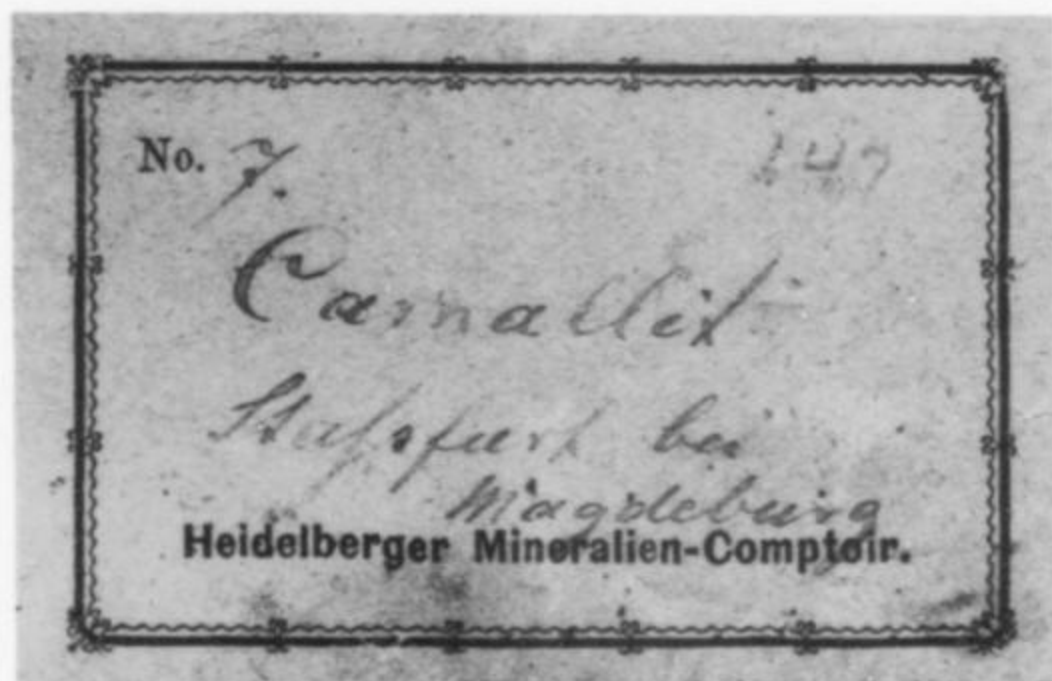 No. 7.
Carnallit
Staßfurt bei
Magdeburg
Heidelberger Mineralien-Comptoir.